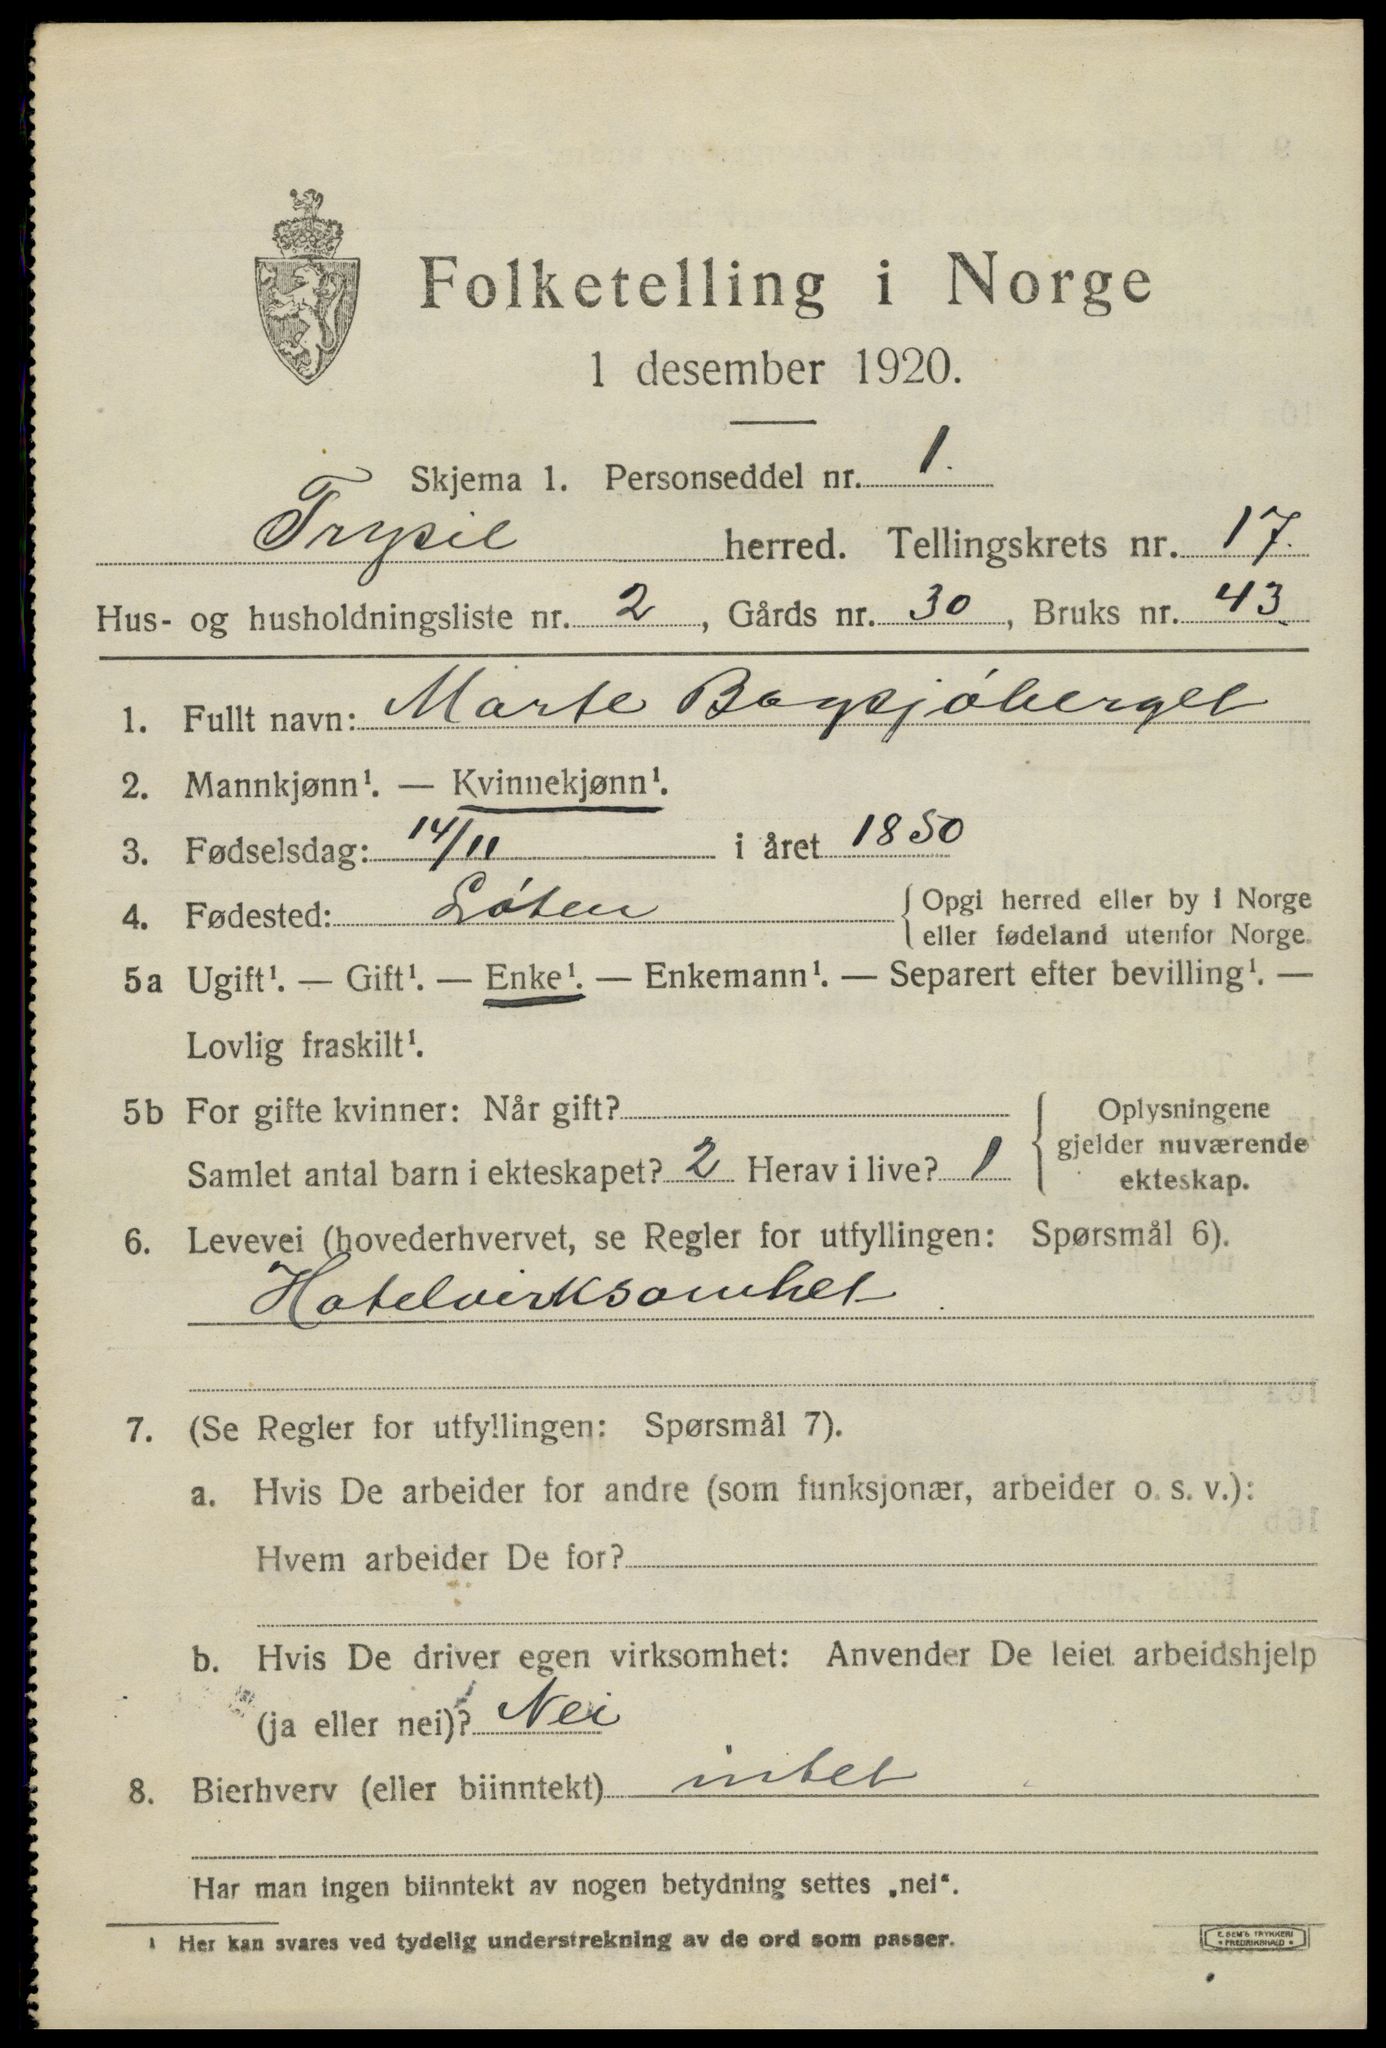 Folketelling i Norge
1 desember 1920.
Skjema 1. Personseddel nr. 1.
Trysil herred. Tellingskrets nr. 17.
Hus- og husholdningsliste nr. 2, Gårds nr. 30, Bruks nr. 43
1. Fullt navn: Marte Bagsjöberget
2. Mannkjønn¹. — Kvinnekjønn¹.
3. Fødselsdag: 14/11 i året 1850
4. Fødested: Löten { Opgi herred eller by i Norge
eller fødeland utenfor Norge.
5a Ugift¹. — Gift¹. — Enke¹. — Enkemann¹. — Separert efter bevilling¹. —
Lovlig fraskilt¹.
5b For gifte kvinner: Når gift?
Samlet antal barn i ekteskapet? 2 Herav i live? 1
Oplysningene
gjelder nuværende
ekteskap.
6. Levevei (hovederhvervet, se Regler for utfyllingen: Spørsmål 6).
Hotelvirksomhet
7. (Se Regler for utfyllingen: Spørsmål 7).
a. Hvis De arbeider for andre (som funksjonær, arbeider o. s. v.):
Hvem arbeider De for?
b. Hvis De driver egen virksomhet: Anvender De leiet arbeidshjelp
(ja eller nei)? Nei
8. Bierhverv (eller biinntekt) intet
Har man ingen biinntekt av nogen betydning settes „nei“.
¹ Her kan svares ved tydelig understrekning av de ord som passer.
E. SEM'S TRYKKERI
• FREDRIKSHALD •